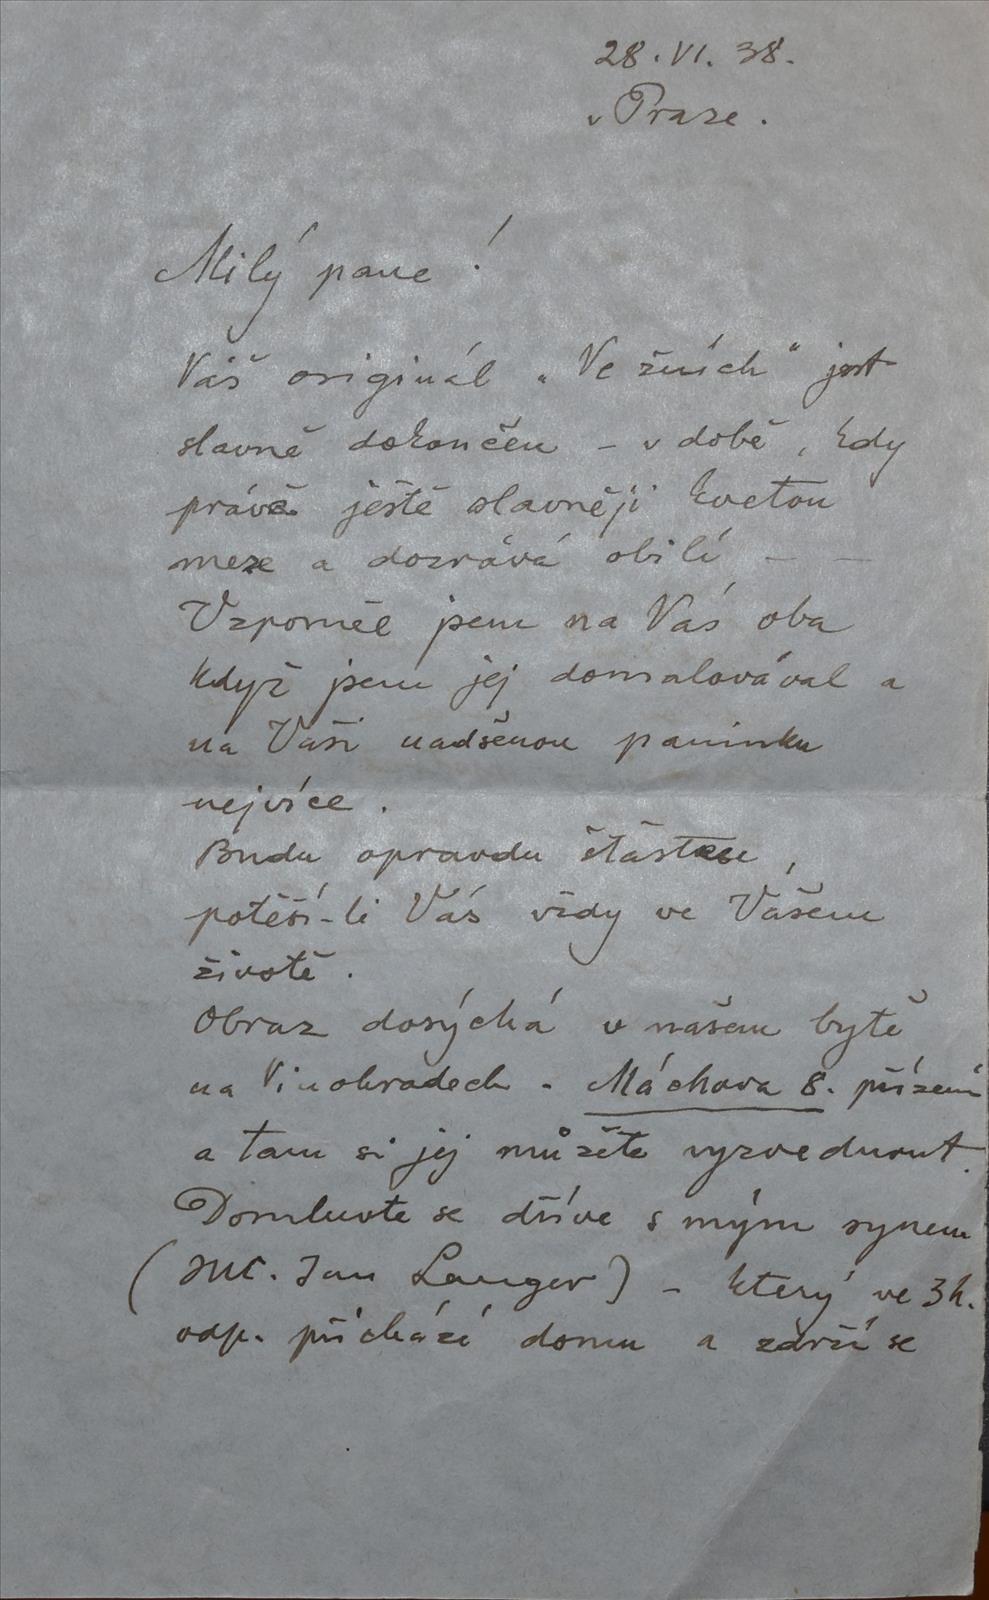 28. VI. 38.
v Praze.
Milý pane!
Váš originál „Ve žních“ jest
slavně dokončen – v době, kdy
právě ještě slavněji kvetou
meze a dozrává obilí – –
Vzpoměl jsem na Vás oba
když jsem jej domalovával a
na Vaši nadšenou paninku
nejvíce.
Budu opravdu šťasten,
potěší-li Vás vždy ve Vašem
životě.
Obraz dosýchá v našem bytě
na Vinohradech - Máchova 8. přízemí
a tam si jej můžete vyzvednout.
Domluvte se dříve s mým synem
( Jan Langer) – který ve 3 h.
odp. přichází domu a zdrží se